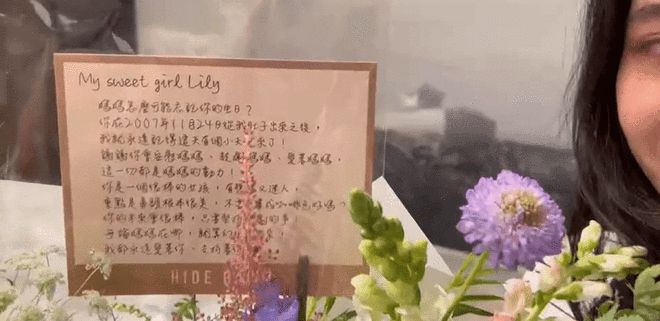 My sweet girl Lily
媽媽怎麼可能忘記你的生日？
你在2007年11月24日從我肚子出來之後，
我就永遠記得這天有個小天使來了！
謝謝你會安慰媽媽，鼓勵媽媽、愛著媽媽，
這一切都是媽媽的動力！
你是一個很棒的女孩，有 又迷人，
重點是素顏根本很美，不 成咖啡色好嗎？
你的未來會很棒，只需要 的事
不論媽媽在哪，
我都永遠愛著你、支持
HIDE